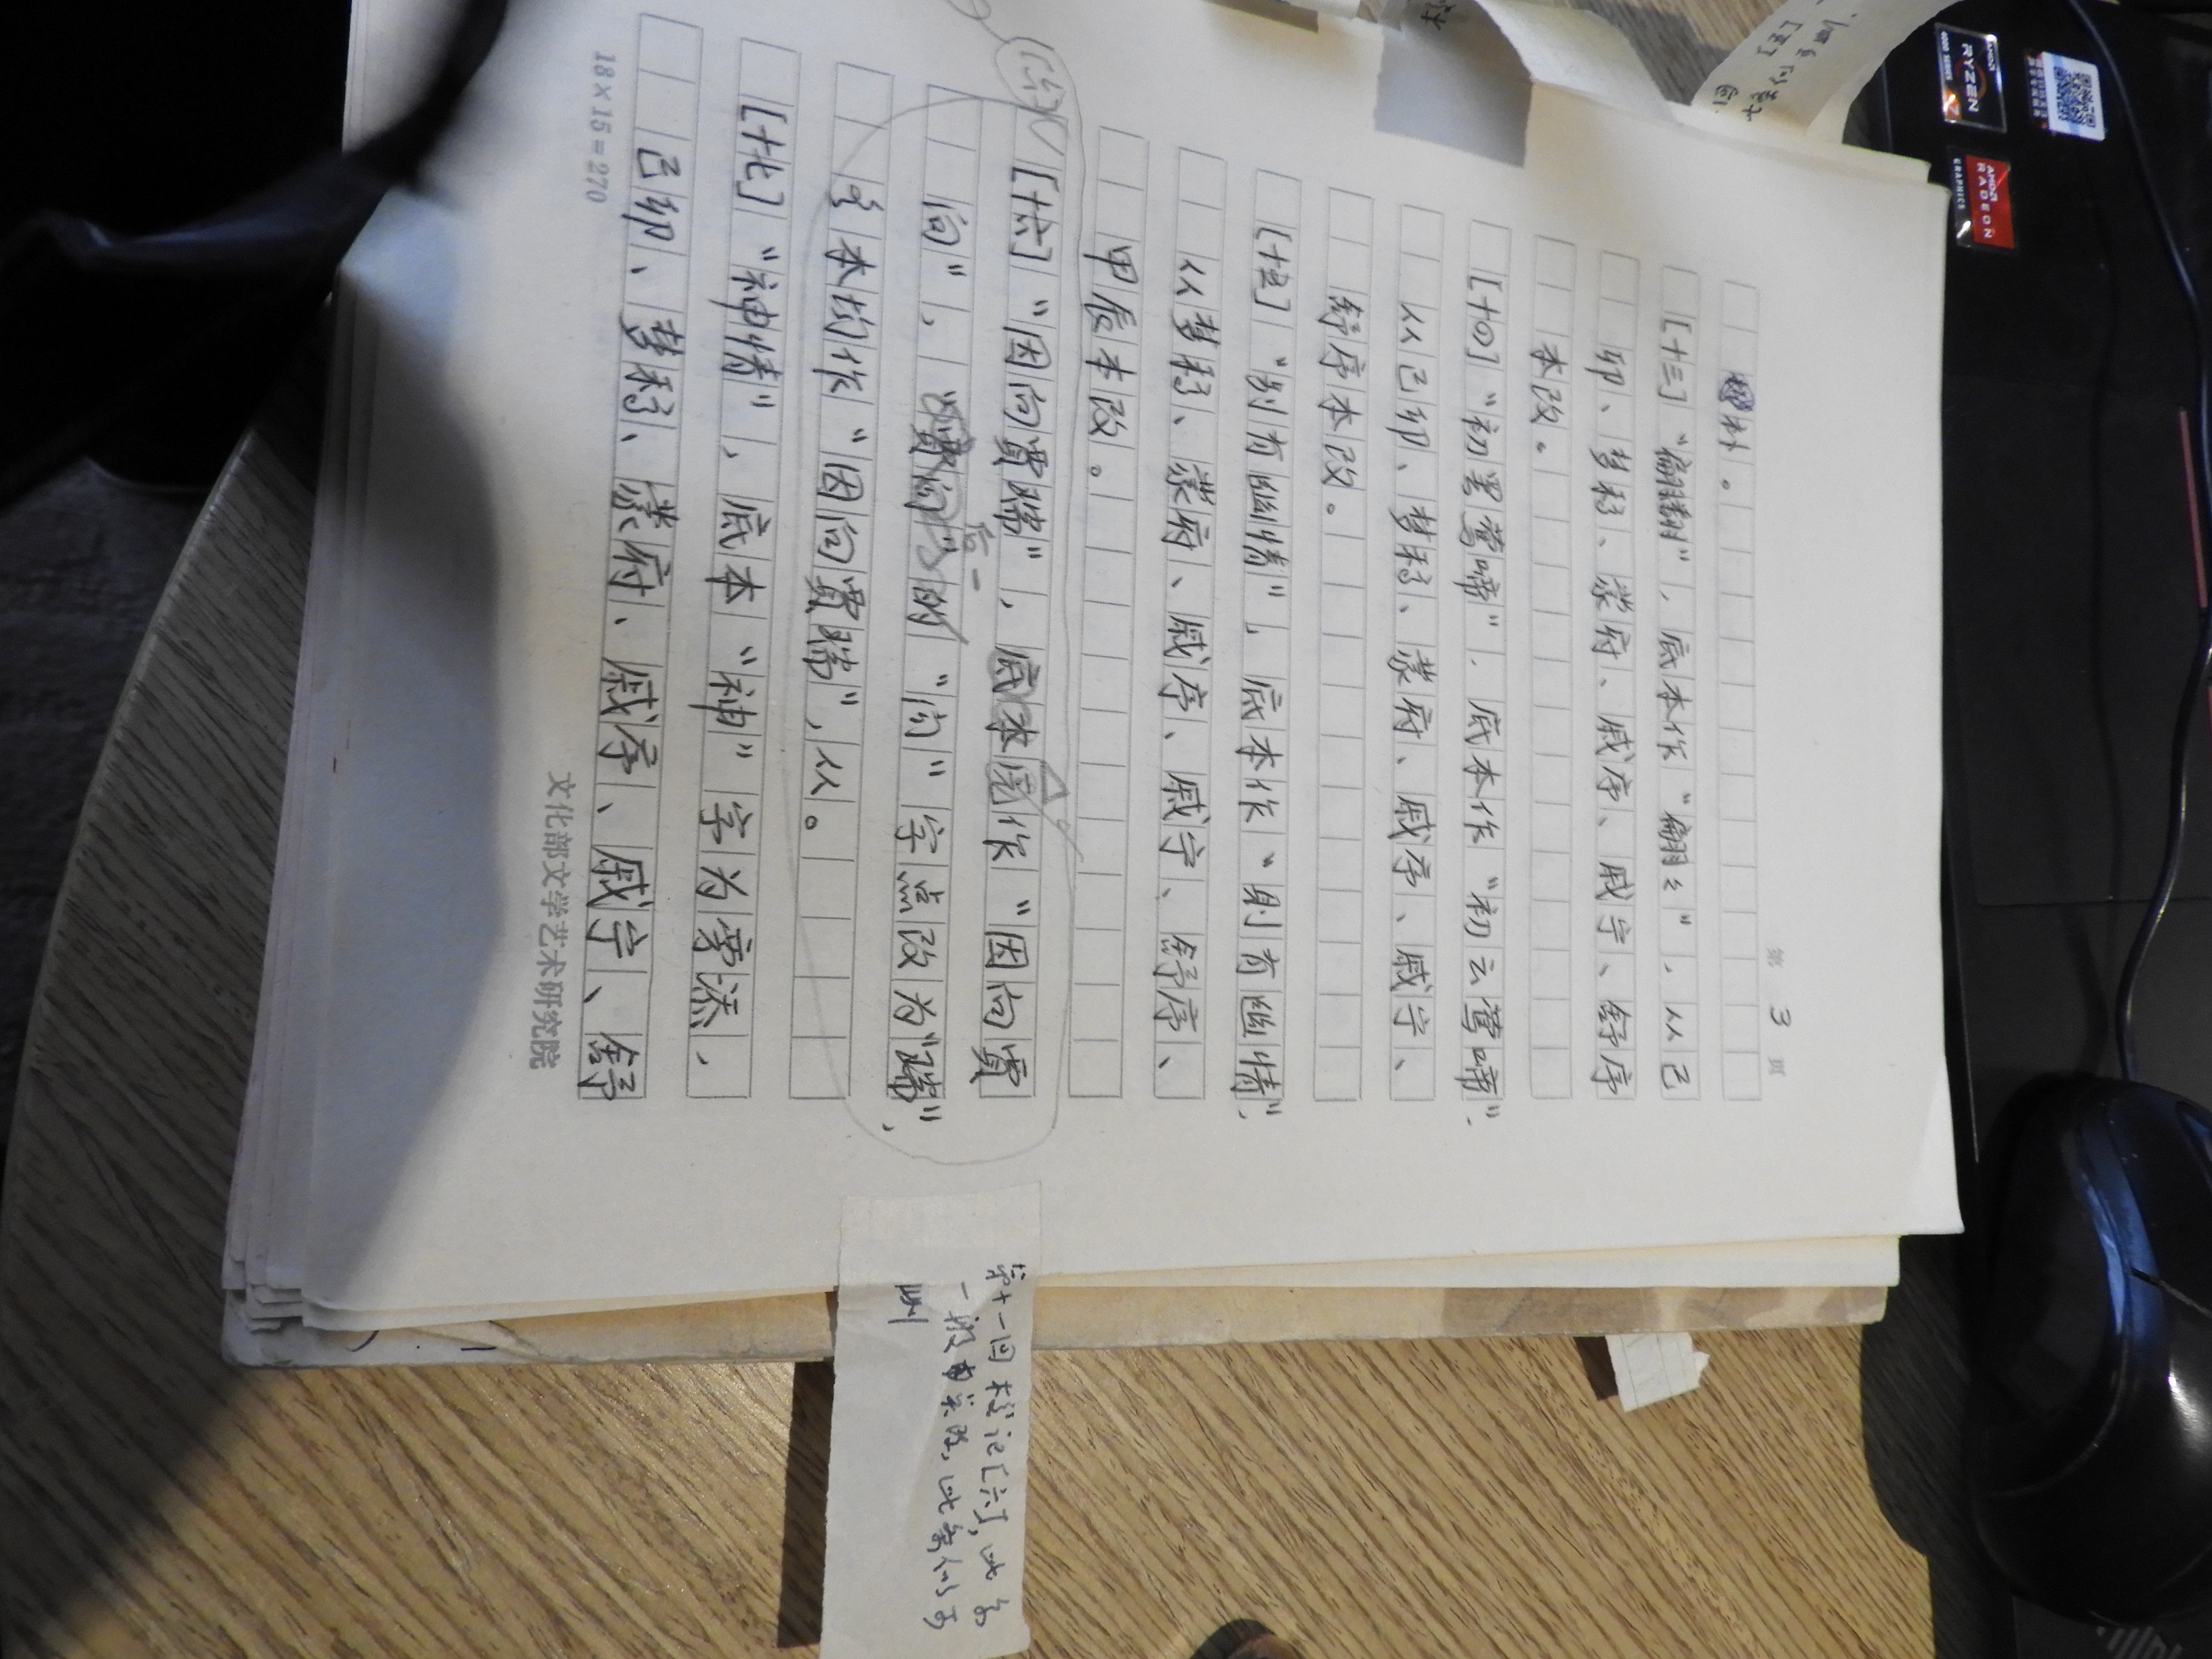 第 3 页
补。
[十三]“偏翻”，底本作“翩ミ”，从己
卯、梦稿、蒙府、戚序、戚宁、舒序
本改。
[十四]“初罢莺啼”，底本作“初云莺啼”，
从己卯、梦稿、蒙府、戚序、戚宁、
舒序本改。
[十五]“别有幽情”，底本作“则有幽情”，
从梦稿、蒙府、戚序、戚宁、舒序、
甲辰本改。
[十六]“因问贾瑞”，底本作“因向贾
后一
向”，的“向”字点改为“瑞”，
各本均作“因问贾瑞”，从。
[十七]“神情”，底本“神”字为旁添，
己卯、梦稿、蒙府、戚序、戚宁、舒
18×15=270
文化部文学艺术研究院
第十一回校记[六]，此条
一般
此
AMD
RYZEN
4000 SERIES
AMD
RADEON
GRAPHICS